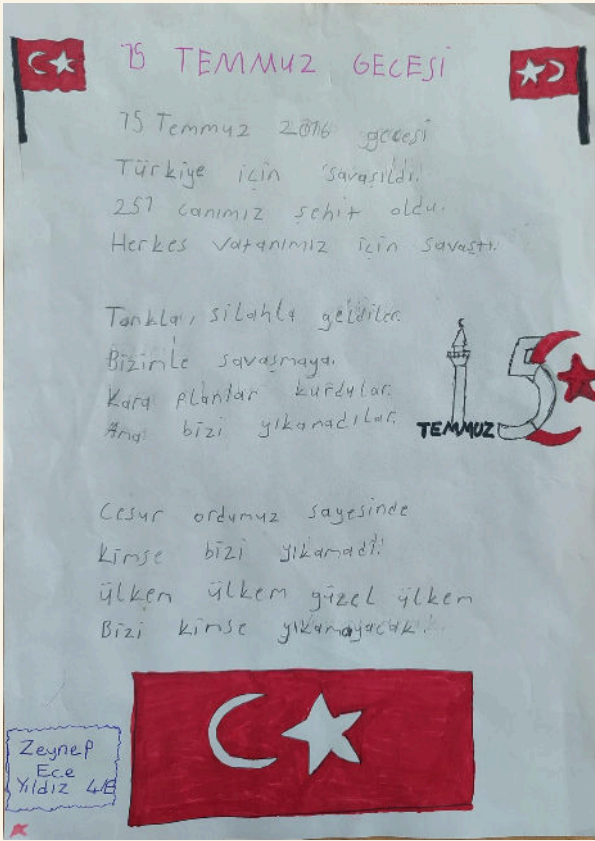 15 TEMMUZ GECESİ
15 Temmuz 2016 gecesi
Türkiye için savaşıldı.
251 canımız şehit oldu.
Herkes vatanımız için savaştı.
Tankla, silahla geldiler.
Bizimle savaşmaya.
Kara planlar kurdular.
Ama bizi yıkamadılar.
TEMMUZ 15
Cesur ordumuz sayesinde
kimse bizi yıkamadı!
ülkem ülkem güzel ülkem
Bizi kimse yıkamayacak.
Zeynep
Ece
Yıldız 4/B